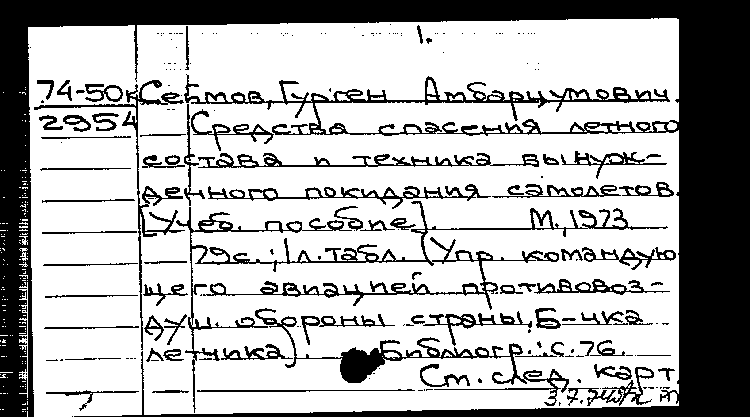 1.
74-50к Сеймов, Гурген Амбарцумович.
2954 Средства спасения летного
состава и техника вынуж-
денного покидания самолетов.
[Учеб. пособие]. М., 1973.
79с.; 1л. табл. (Упр. командую-
щего авиацией противовоз-
душ. обороны страны, Б-чка
летчика). Библиогр.: с. 76.
См. след. карт.